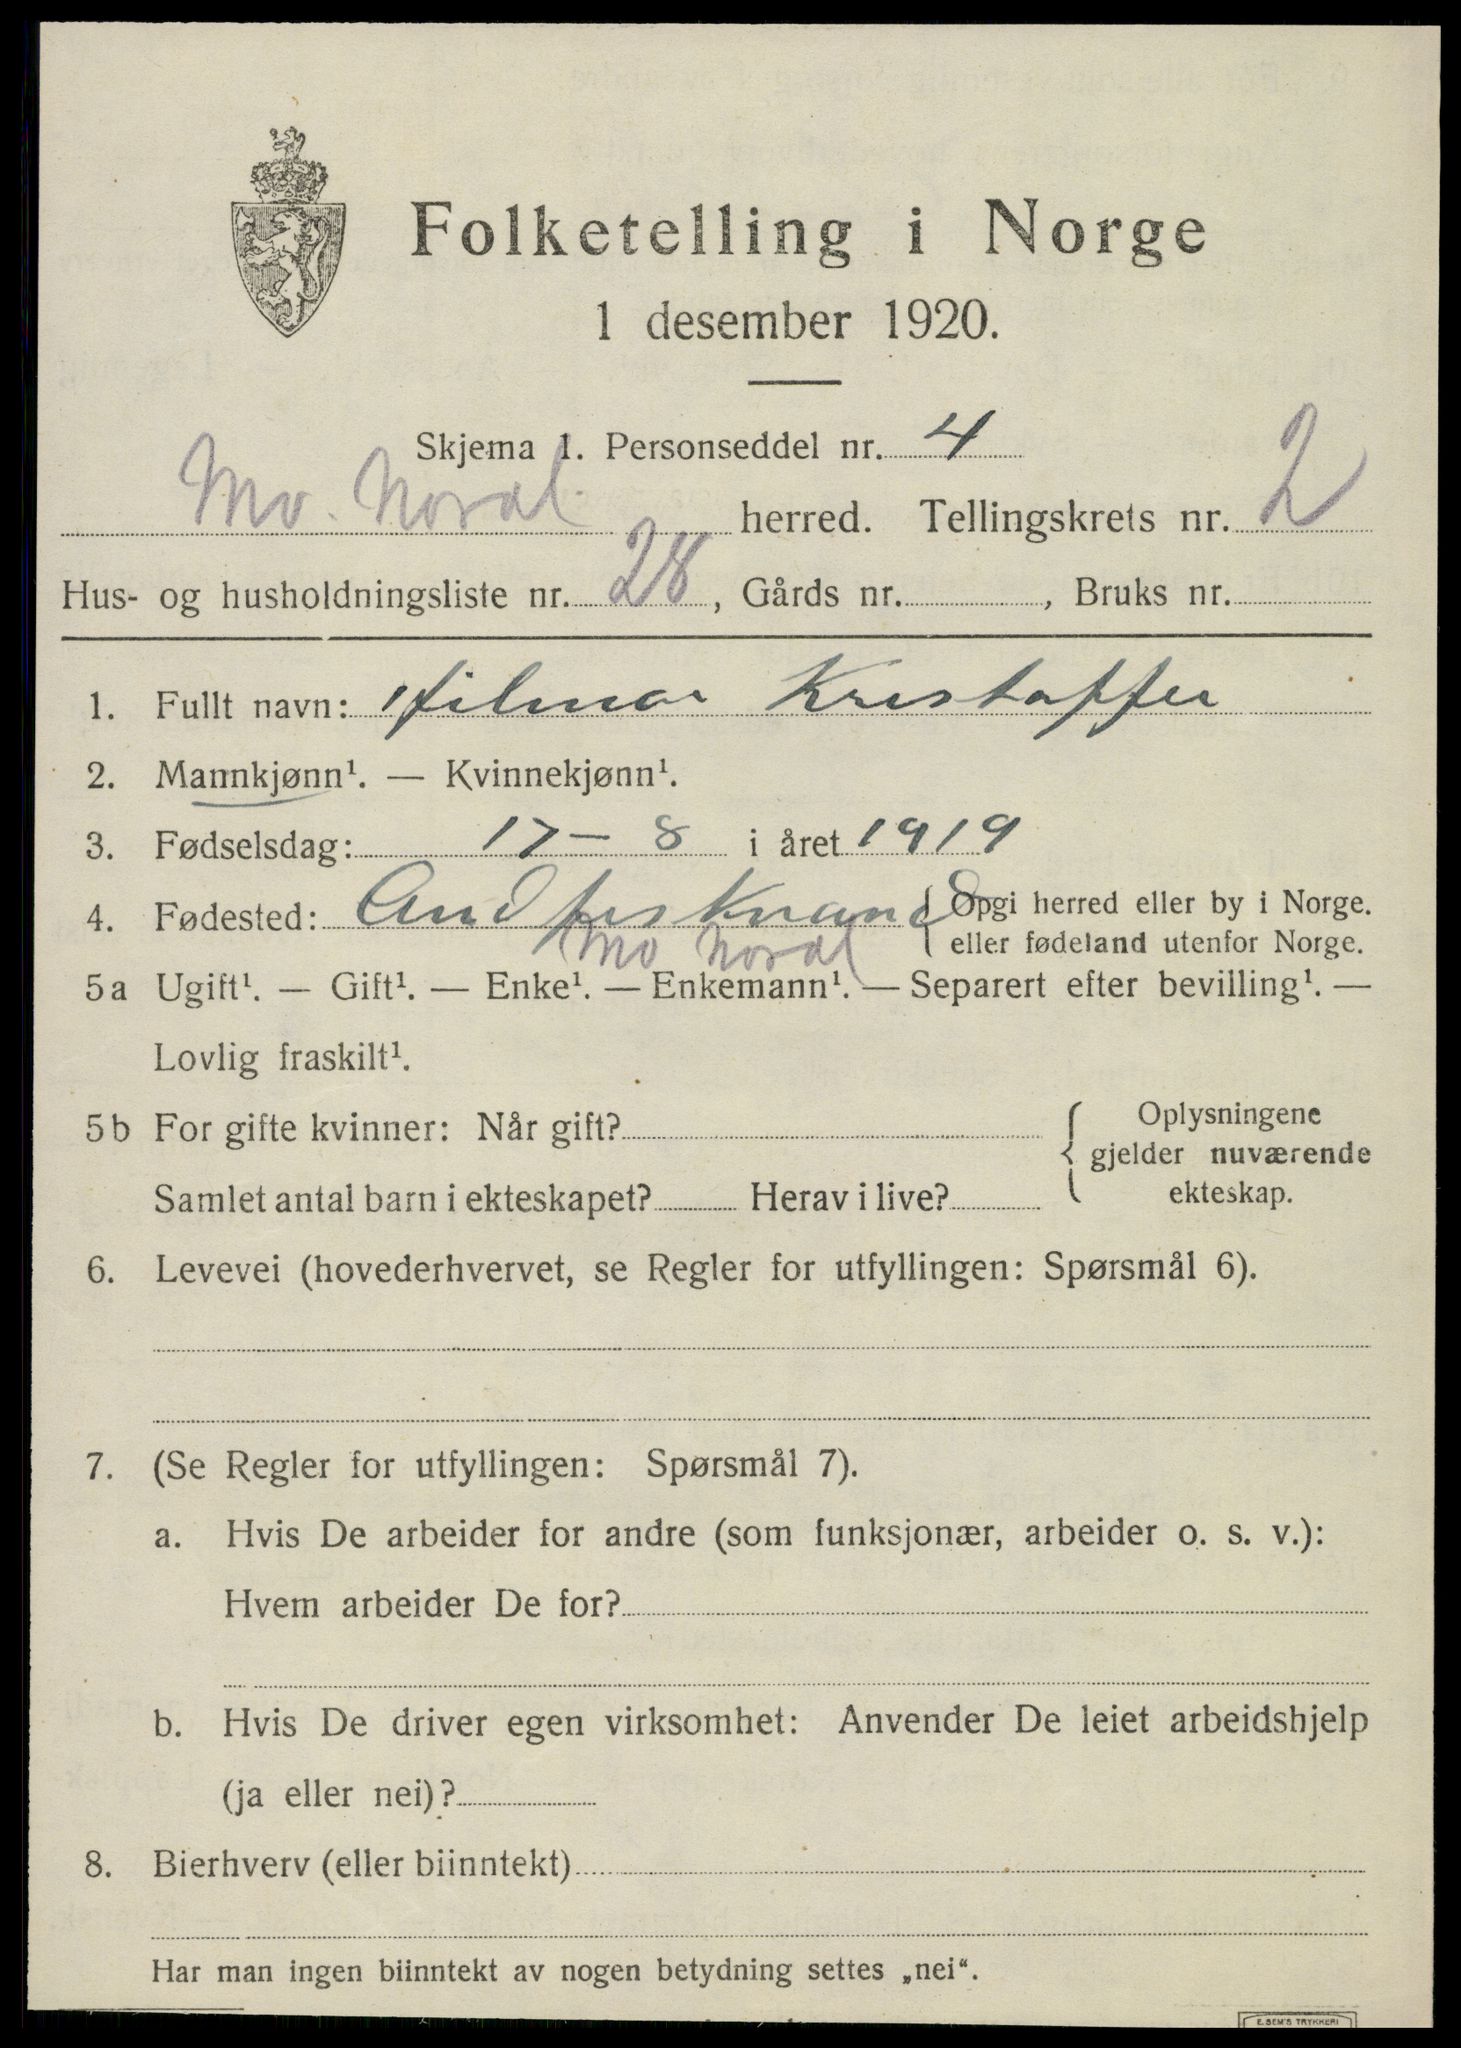 Folketelling i Norge
1 desember 1920.
Skjema 1. Personseddel nr. 4
Mo. Nordl. herred. Tellingskrets nr. 2
Hus- og husholdningsliste nr. 28, Gårds nr. , Bruks nr.
1. Fullt navn: Hilmar Kristoffer
2. Mannkjønn¹. — Kvinnekjønn¹.
3. Fødselsdag: 17 – 8 i året 1919
4. Fødested: { Opgi herred eller by i Norge.
eller fødeland utenfor Norge.
Mo Nordl
5a Ugift¹. — Gift¹. — Enke¹. — Enkemann¹. — Separert efter bevilling¹. —
Lovlig fraskilt¹.
5b For gifte kvinner: Når gift?
Samlet antal barn i ekteskapet? Herav i live?
{ Oplysningene
gjelder nuværende
ekteskap.
6. Levevei (hovederhvervet, se Regler for utfyllingen: Spørsmål 6).
7. (Se Regler for utfyllingen: Spørsmål 7).
a. Hvis De arbeider for andre (som funksjonær, arbeider o. s. v.):
Hvem arbeider De for?
b. Hvis De driver egen virksomhet: Anvender De leiet arbeidshjelp
(ja eller nei)?
8. Bierhverv (eller biinntekt)
Har man ingen biinntekt av nogen betydning settes „nei“.
E. SEM'S TRYKKERI